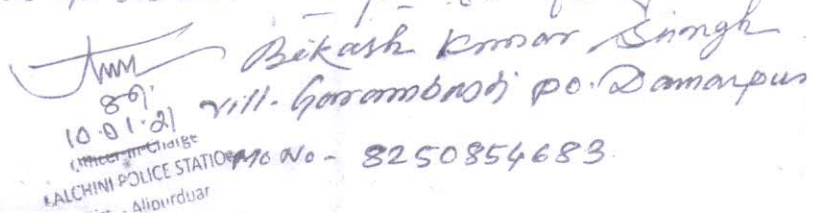 Bikash Kumar Singh
vill. Garrambasti po. Damanpur
10.01.21
Officer-in-Charge
KALCHINI POLICE STATION
Mo No - 8250854683
Alipurduar